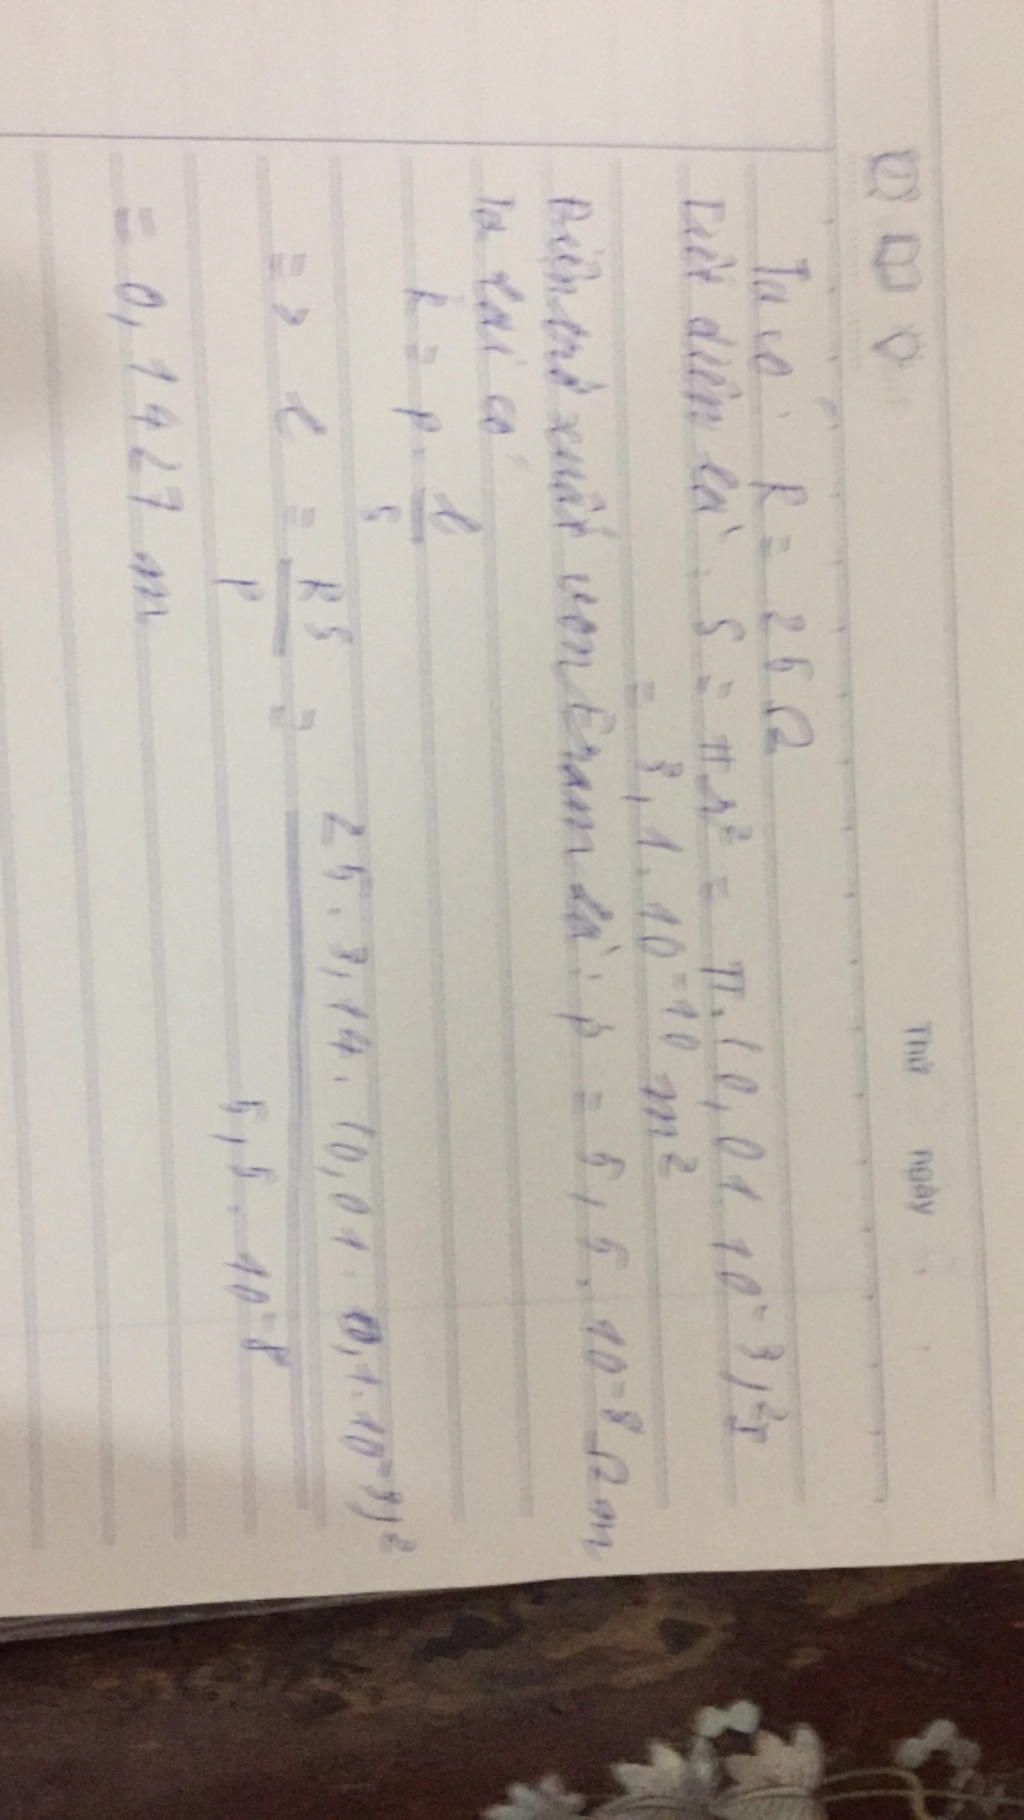 Thứ ngày
Ta có: R = 25 Ω
Tiết diện là: S = πr² = π.(0,01.10⁻³)²
= 3,1.10⁻¹⁰ m²
Điện trở xuất vonfram là: ρ = 5,5.10⁻⁸ Ωm
Ta lại có
R = ρ.l/S
=> l = RS/ρ = 25.3,14.(0,01.0,1.10⁻³)²/5,5.10⁻⁸
= 0,1427 m